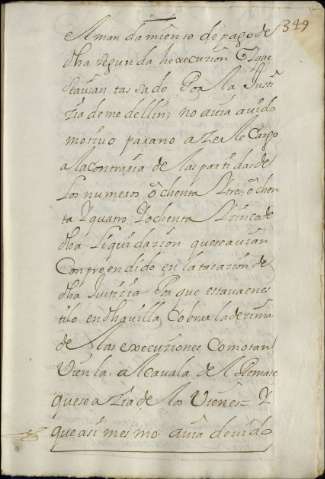 349
el mandamiento de pago de
dha segunda hexecusion Y que
estavan tasado Por la Justi
zia de medellin no avia avido
motivo para no azerle Cargo
a la contraria de las partidas de
los numeros ochenta Y tres ochen
ta Y quatro Y ochenta Y Sinco de
dha Liquidazion que se avian
Compreendido en la tasazion de
dha Justizia Por que estava en es
tilo en dha villa Cobrar la dezima
de las execuziones Como tan
Vien la alcavala del Remate
que se azia de los Vienes = Y
que asi mesmo avia devido